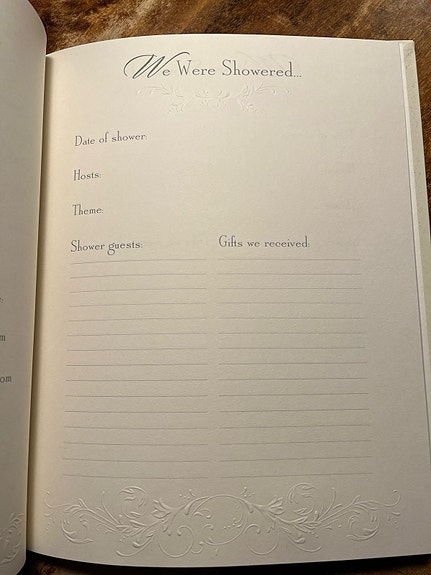 We Were Showered...
Date of shower:
Hosts:
Theme:
Shower guests:
Gifts we received: